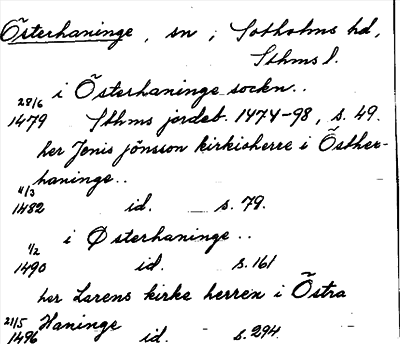 Österhaninge, sn, Sotholms hd,
Sthms l.
i Österhaninge sockn..
28/6
1479 Sthms jordeb. 1474-98, s. 49.
her Jenis jönsson kirkioherre i Östher-
haninge..
11/3
1482 id. s. 79.
i Østerhaninge..
1/2
1490 id. s. 161
her Larens kirke herren i Östra
Haninge
21/5
1496 id. s. 294.